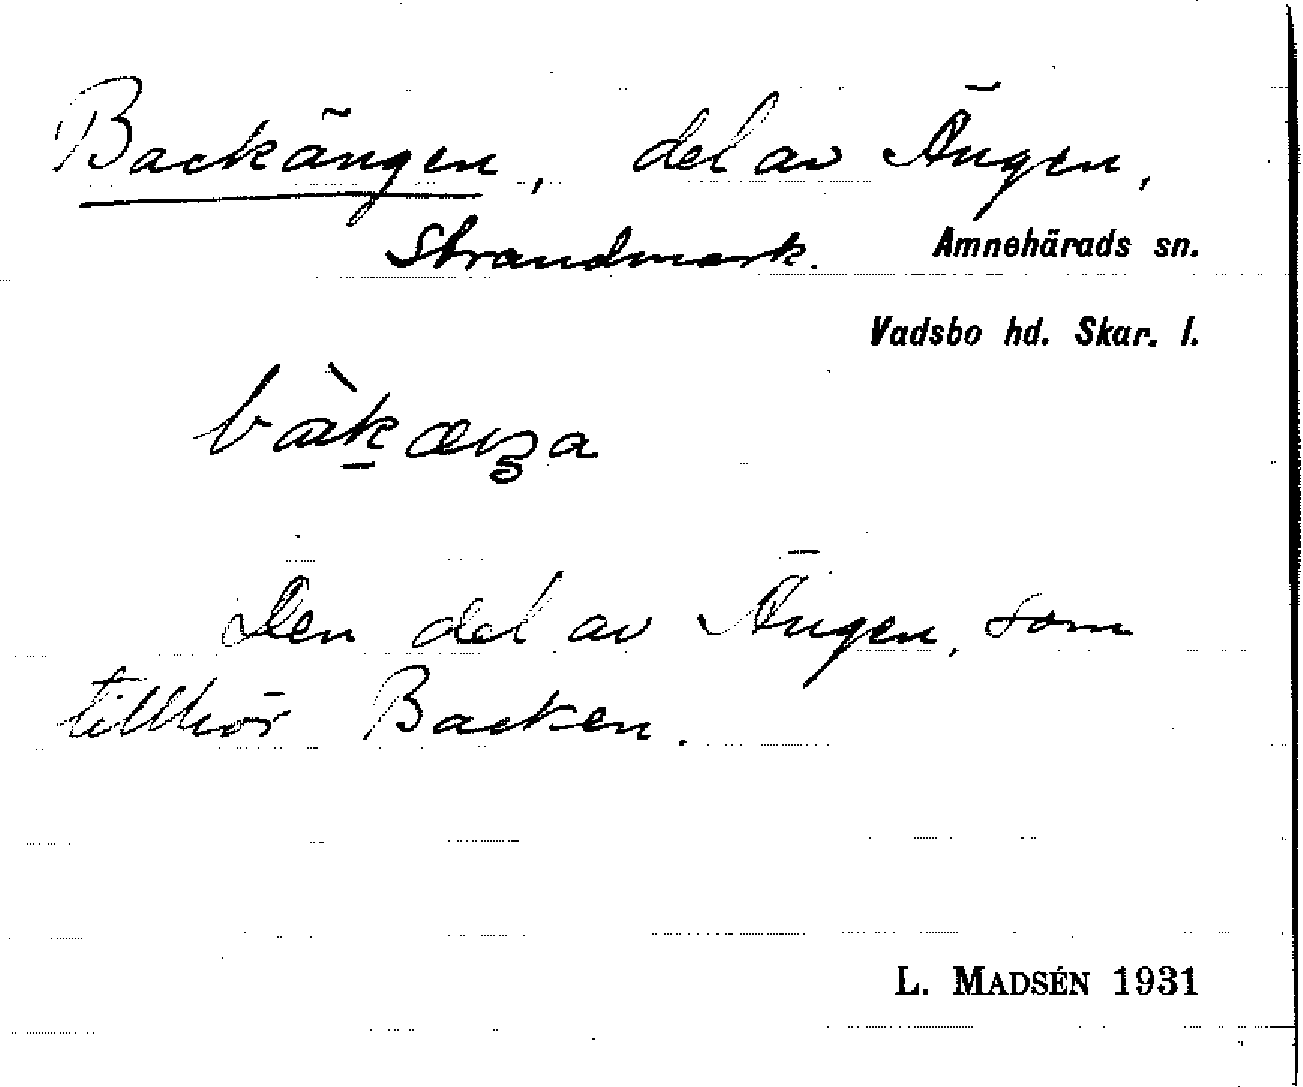 Backängen, del av Ängen,
Strandmark.
Amnehärads sn.
Vadsbo hd. Skar. l.
Den del av Ängen, som
tillhör Backen.
L. MADSÉN 1931